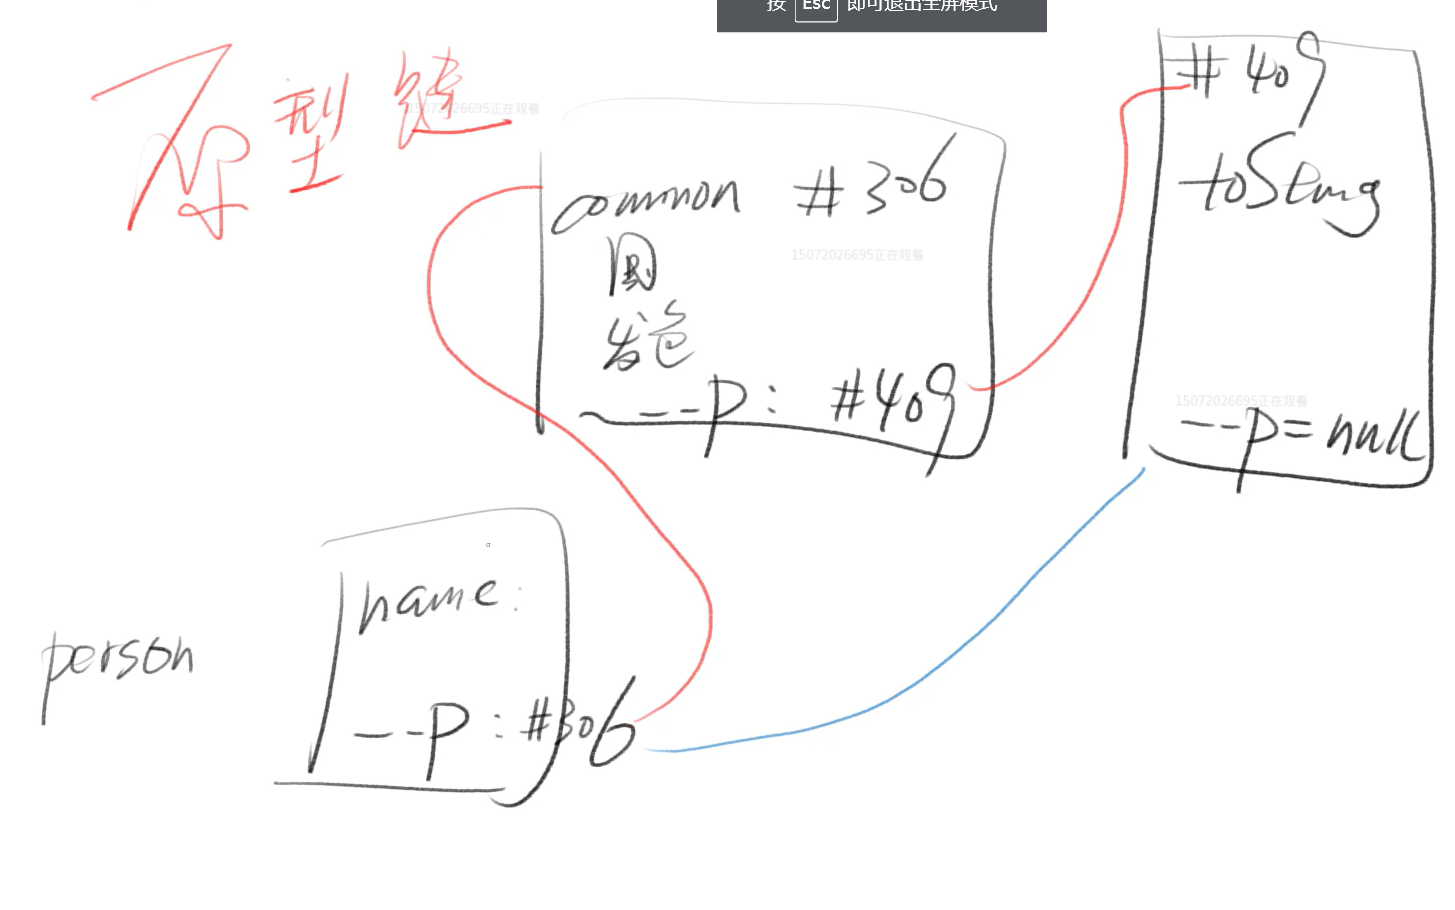 按 Esc 即可退出全屏模式
原型链
15072026695正在观看
common #306
15072026695正在观看
国
发色
--p: #409
#409
toString
15072026695正在观看
--p=null
person
name:
--p:#306